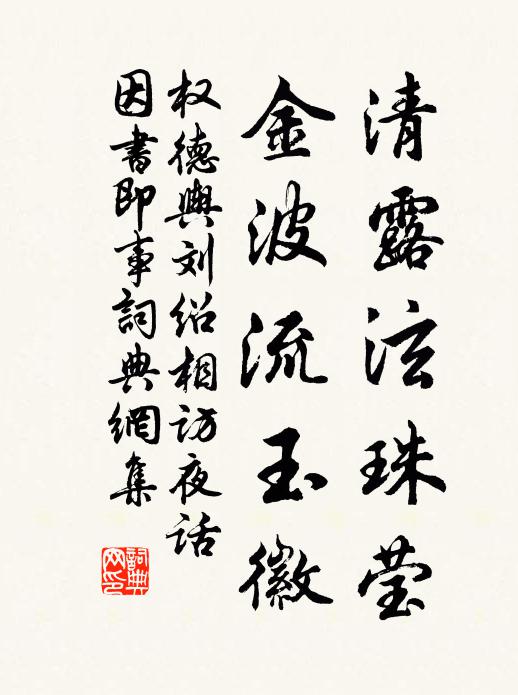 清露泫珠莹
金波流玉徽
权德舆刘绍相访夜话
因書即事詞典網集
詞典
网印